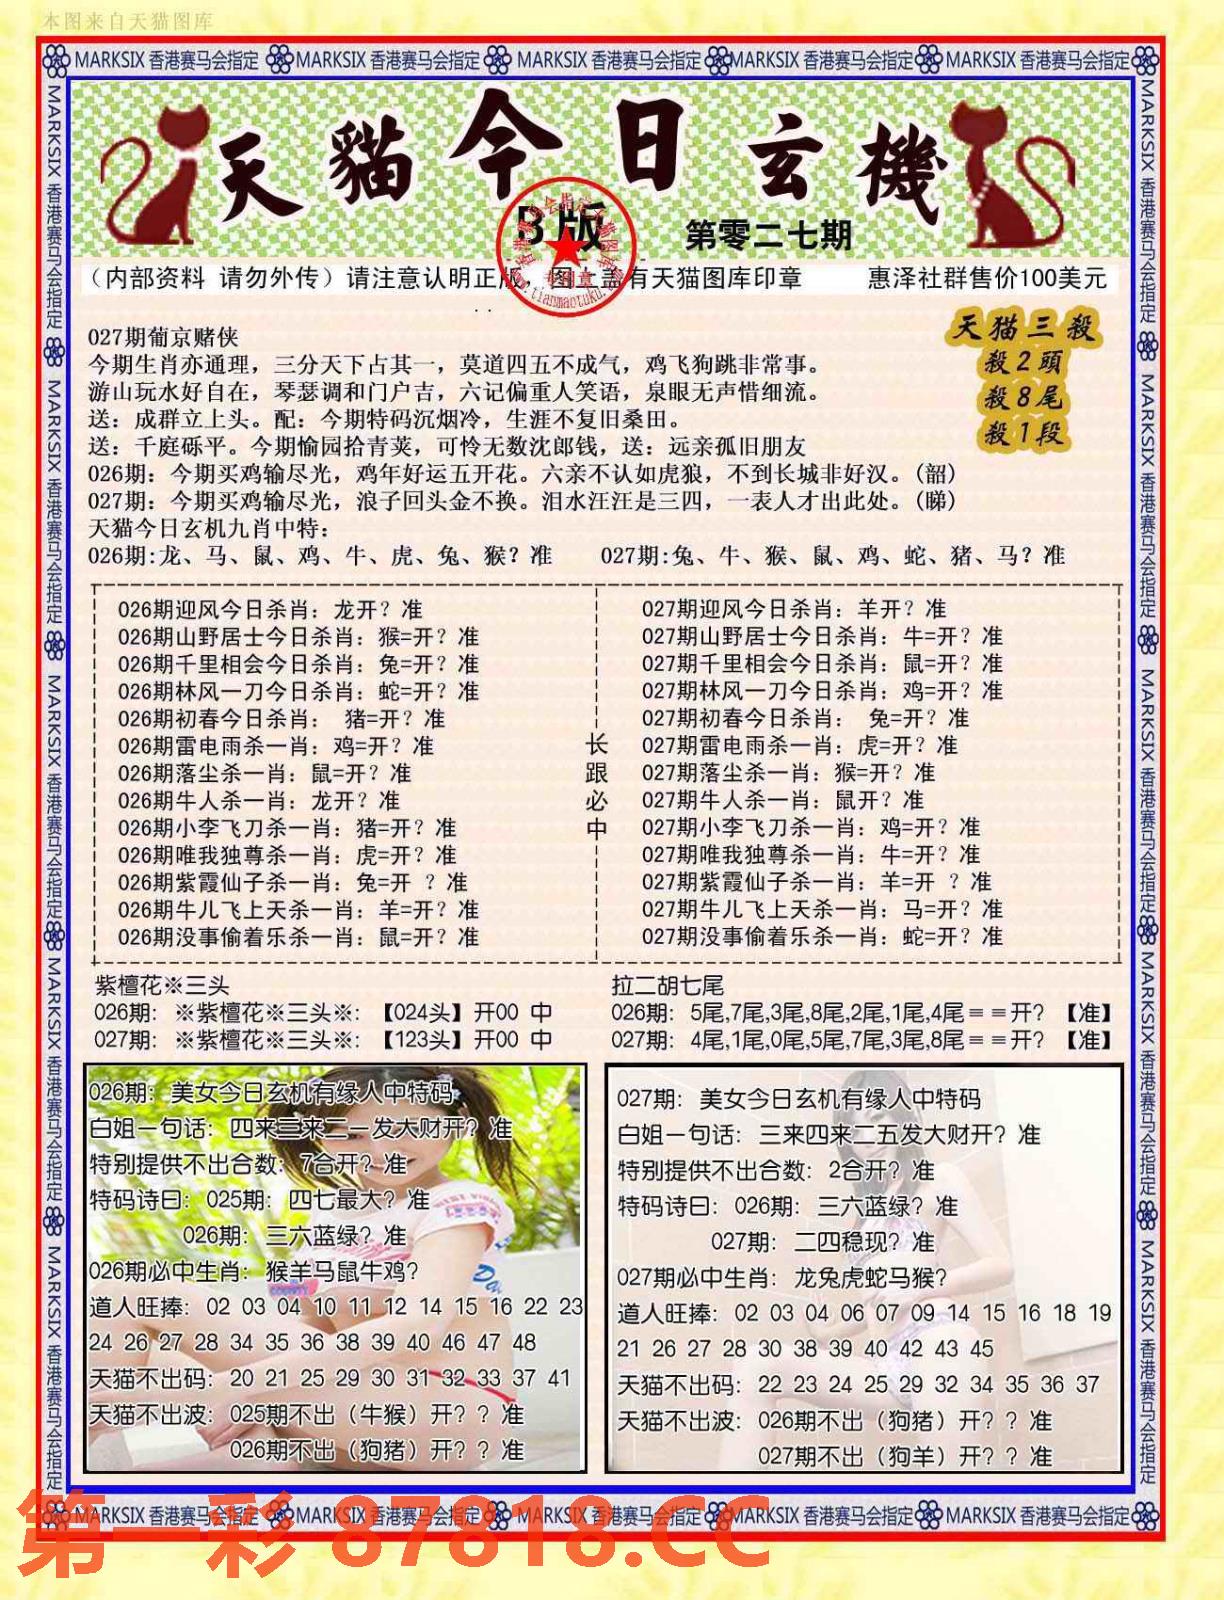 本图来自天猫图库
MARKSIX 香港赛马会指定 MARKSIX 香港赛马会指定 MARKSIX 香港赛马会指定 MARKSIX 香港赛马会指定 MARKSIX 香港赛马会指定
天貓今日玄機
B版
第零二七期
(内部资料 请勿外传)请注意认明正版,图上盖有天猫图库印章 惠泽社群售价100美元
天猫三殺
殺2頭
殺8尾
殺1段
027期葡京赌侠
今期生肖亦通理，三分天下占其一，莫道四五不成气，鸡飞狗跳非常事。
游山玩水好自在，琴瑟调和门户吉，六记偏重人笑语，泉眼无声惜细流。
送：成群立上头。配：今期特码沉烟冷，生涯不复旧桑田。
送：千庭砾平。今期愉园拾青荚，可怜无数沈郎钱，送：远亲孤旧朋友
026期：今期买鸡输尽光，鸡年好运五开花。六亲不认如虎狼，不到长城非好汉。(韶)
027期：今期买鸡输尽光，浪子回头金不换。泪水汪汪是三四，一表人才出此处。(睇)
天猫今日玄机九肖中特：
026期:龙、马、鼠、鸡、牛、虎、兔、猴？准 027期:兔、牛、猴、鼠、鸡、蛇、猪、马？准
026期迎风今日杀肖：龙开？准
026期山野居士今日杀肖：猴=开？准
026期千里相会今日杀肖：兔=开？准
026期林风一刀今日杀肖：蛇=开？准
026期初春今日杀肖： 猪=开？准
026期雷电雨杀一肖：鸡=开？准
026期落尘杀一肖：鼠=开？准
026期牛人杀一肖：龙开？准
026期小李飞刀杀一肖：猪=开？准
026期唯我独尊杀一肖：虎=开？准
026期紫霞仙子杀一肖：兔=开 ？准
026期牛儿飞上天杀一肖：羊=开？准
026期没事偷着乐杀一肖：鼠=开？准
长跟必中
027期迎风今日杀肖：羊开？准
027期山野居士今日杀肖：牛=开？准
027期千里相会今日杀肖：鼠=开？准
027期林风一刀今日杀肖：鸡=开？准
027期初春今日杀肖： 兔=开？准
027期雷电雨杀一肖：虎=开？准
027期落尘杀一肖：猴=开？准
027期牛人杀一肖：鼠开？准
027期小李飞刀杀一肖：鸡=开？准
027期唯我独尊杀一肖：牛=开？准
027期紫霞仙子杀一肖：羊=开 ？准
027期牛儿飞上天杀一肖：马=开？准
027期没事偷着乐杀一肖：蛇=开？准
紫檀花※三头
026期：※紫檀花※三头※：【024头】开00 中
027期：※紫檀花※三头※：【123头】开00 中
拉二胡七尾
026期：5尾,7尾,3尾,8尾,2尾,1尾,4尾＝＝开？【准】
027期：4尾,1尾,0尾,5尾,7尾,3尾,8尾＝＝开？【准】
026期：美女今日玄机有缘人中特码
白姐一句话：四来三来二一发大财开？准
特别提供不出合数：7合开？准
特码诗曰：025期：四七最大？准
026期：三六蓝绿？准
026期必中生肖：猴羊马鼠牛鸡？
道人旺捧：02 03 04 10 11 12 14 15 16 22 23
24 26 27 28 34 35 36 38 39 40 46 47 48
天猫不出码：20 21 25 29 30 31 32 33 37 41
天猫不出波：025期不出（牛猴）开？？准
026期不出（狗猪）开？？准
027期：美女今日玄机有缘人中特码
白姐一句话：三来四来二五发大财开？准
特别提供不出合数：2合开？准
特码诗曰：026期：三六蓝绿？准
027期：二四稳现？准
027期必中生肖：龙兔虎蛇马猴？
道人旺捧：02 03 04 06 07 09 14 15 16 18 19
21 26 27 28 30 38 39 40 42 43 45
天猫不出码：22 23 24 25 29 32 34 35 36 37
天猫不出波：026期不出（狗猪）开？？准
027期不出（狗羊）开？？准
MARKSIX 香港赛马会指定 MARKSIX 香港赛马会指定 MARKSIX 香港赛马会指定 MARKSIX 香港赛马会指定 MARKSIX 香港赛马会指定
第一彩 87818.CC
MARKSIX 香港赛马会指定 MARKSIX 香港赛马会指定 MARKSIX 香港赛马会指定 MARKSIX 香港赛马会指定 MARKSIX 香港赛马会指定
MARKSIX 香港赛马会指定 MARKSIX 香港赛马会指定 MARKSIX 香港赛马会指定 MARKSIX 香港赛马会指定 MARKSIX 香港赛马会指定